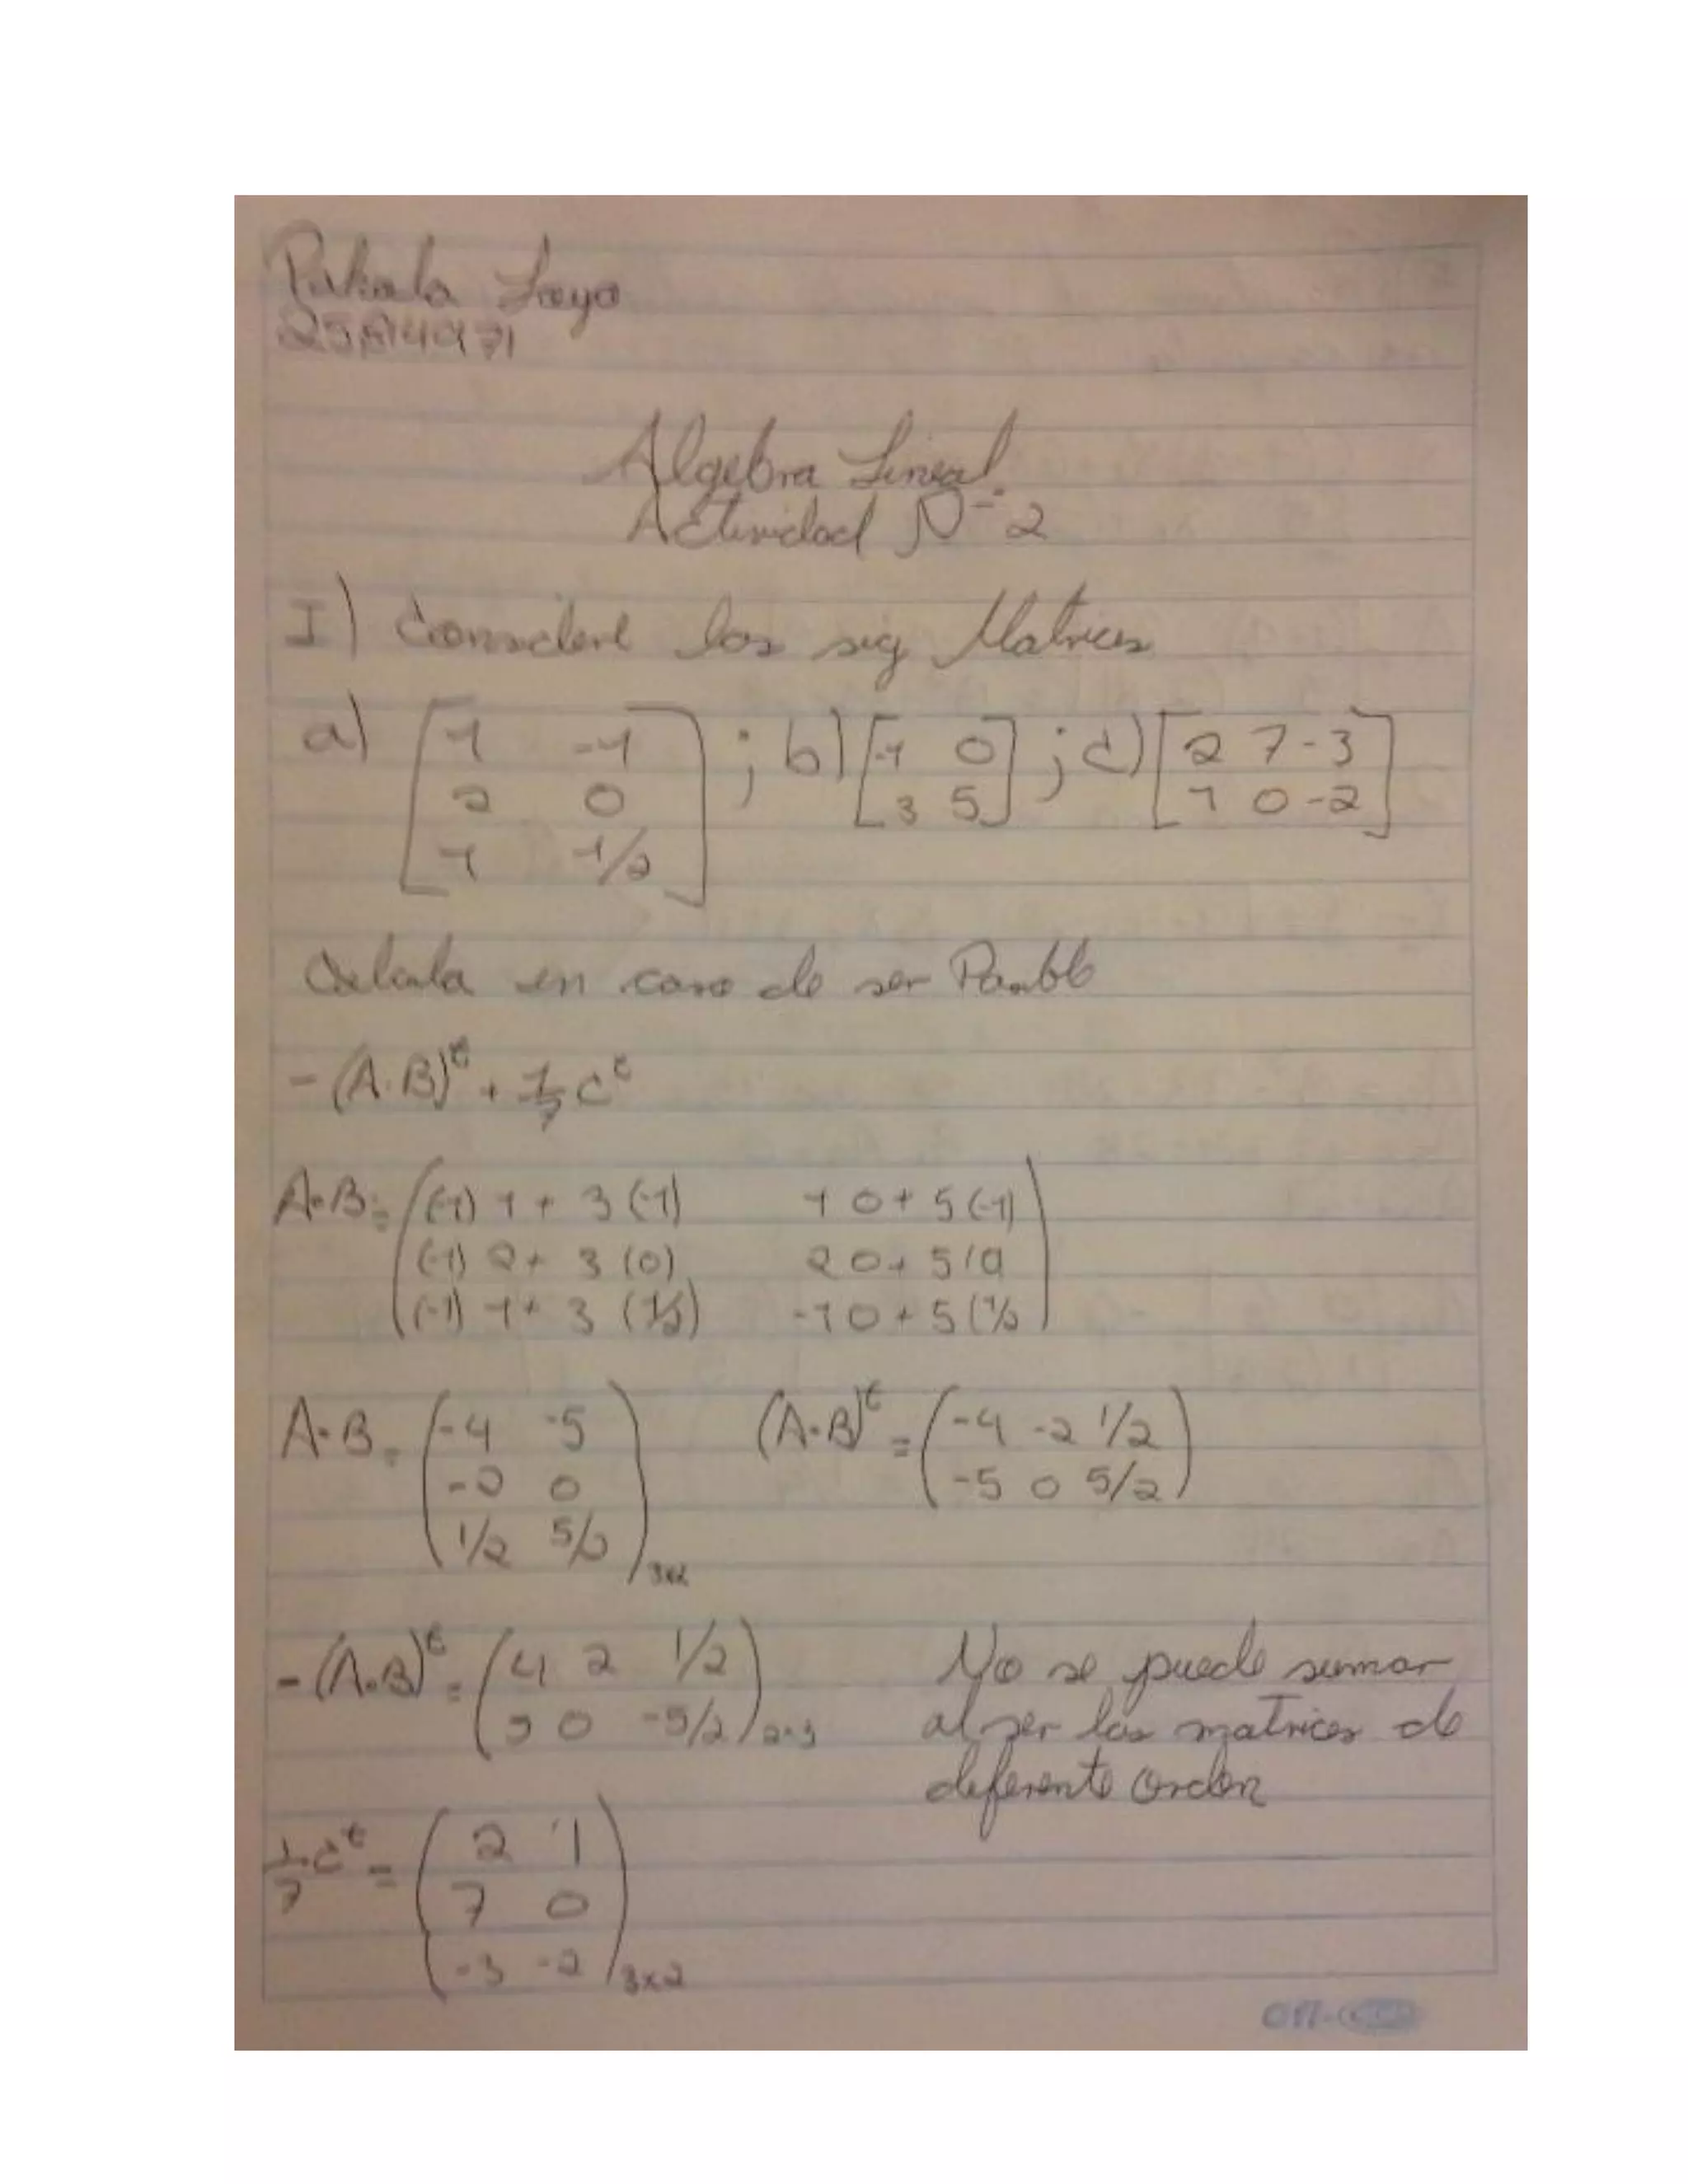 Algebra Lineal
Actividad N° 2
I) Considere las sig Matrices
a) [1 -1; 2 0; 1 1/2] ; b) [-1 0; 3 5] ; c) [2 7 -3; 1 0 -2]
Calcula en caso de ser Posible
- (A·B)^t + 1/7 C^t
A·B = ( (-1) 1 + 3 (-1)   1 0 + 5 (-1)
(-1) 2 + 3 (0)   2 0 + 5 (0
(-1) 1 + 3 (1/2)   -1 0 + 5 (1/2 )
A·B = (-4 -5   (A·B)^t = (-4 -2 1/2
-2 0   -5 0 5/2)
1/2 5/2) 3x2
- (A·B)^t = (4 2 1/2   No se puede sumar
5 0 -5/2) 2x3   al ser las matrices de
deferente Orden
1/7 C^t = (2 1
7 0
-3 -2) 3x2